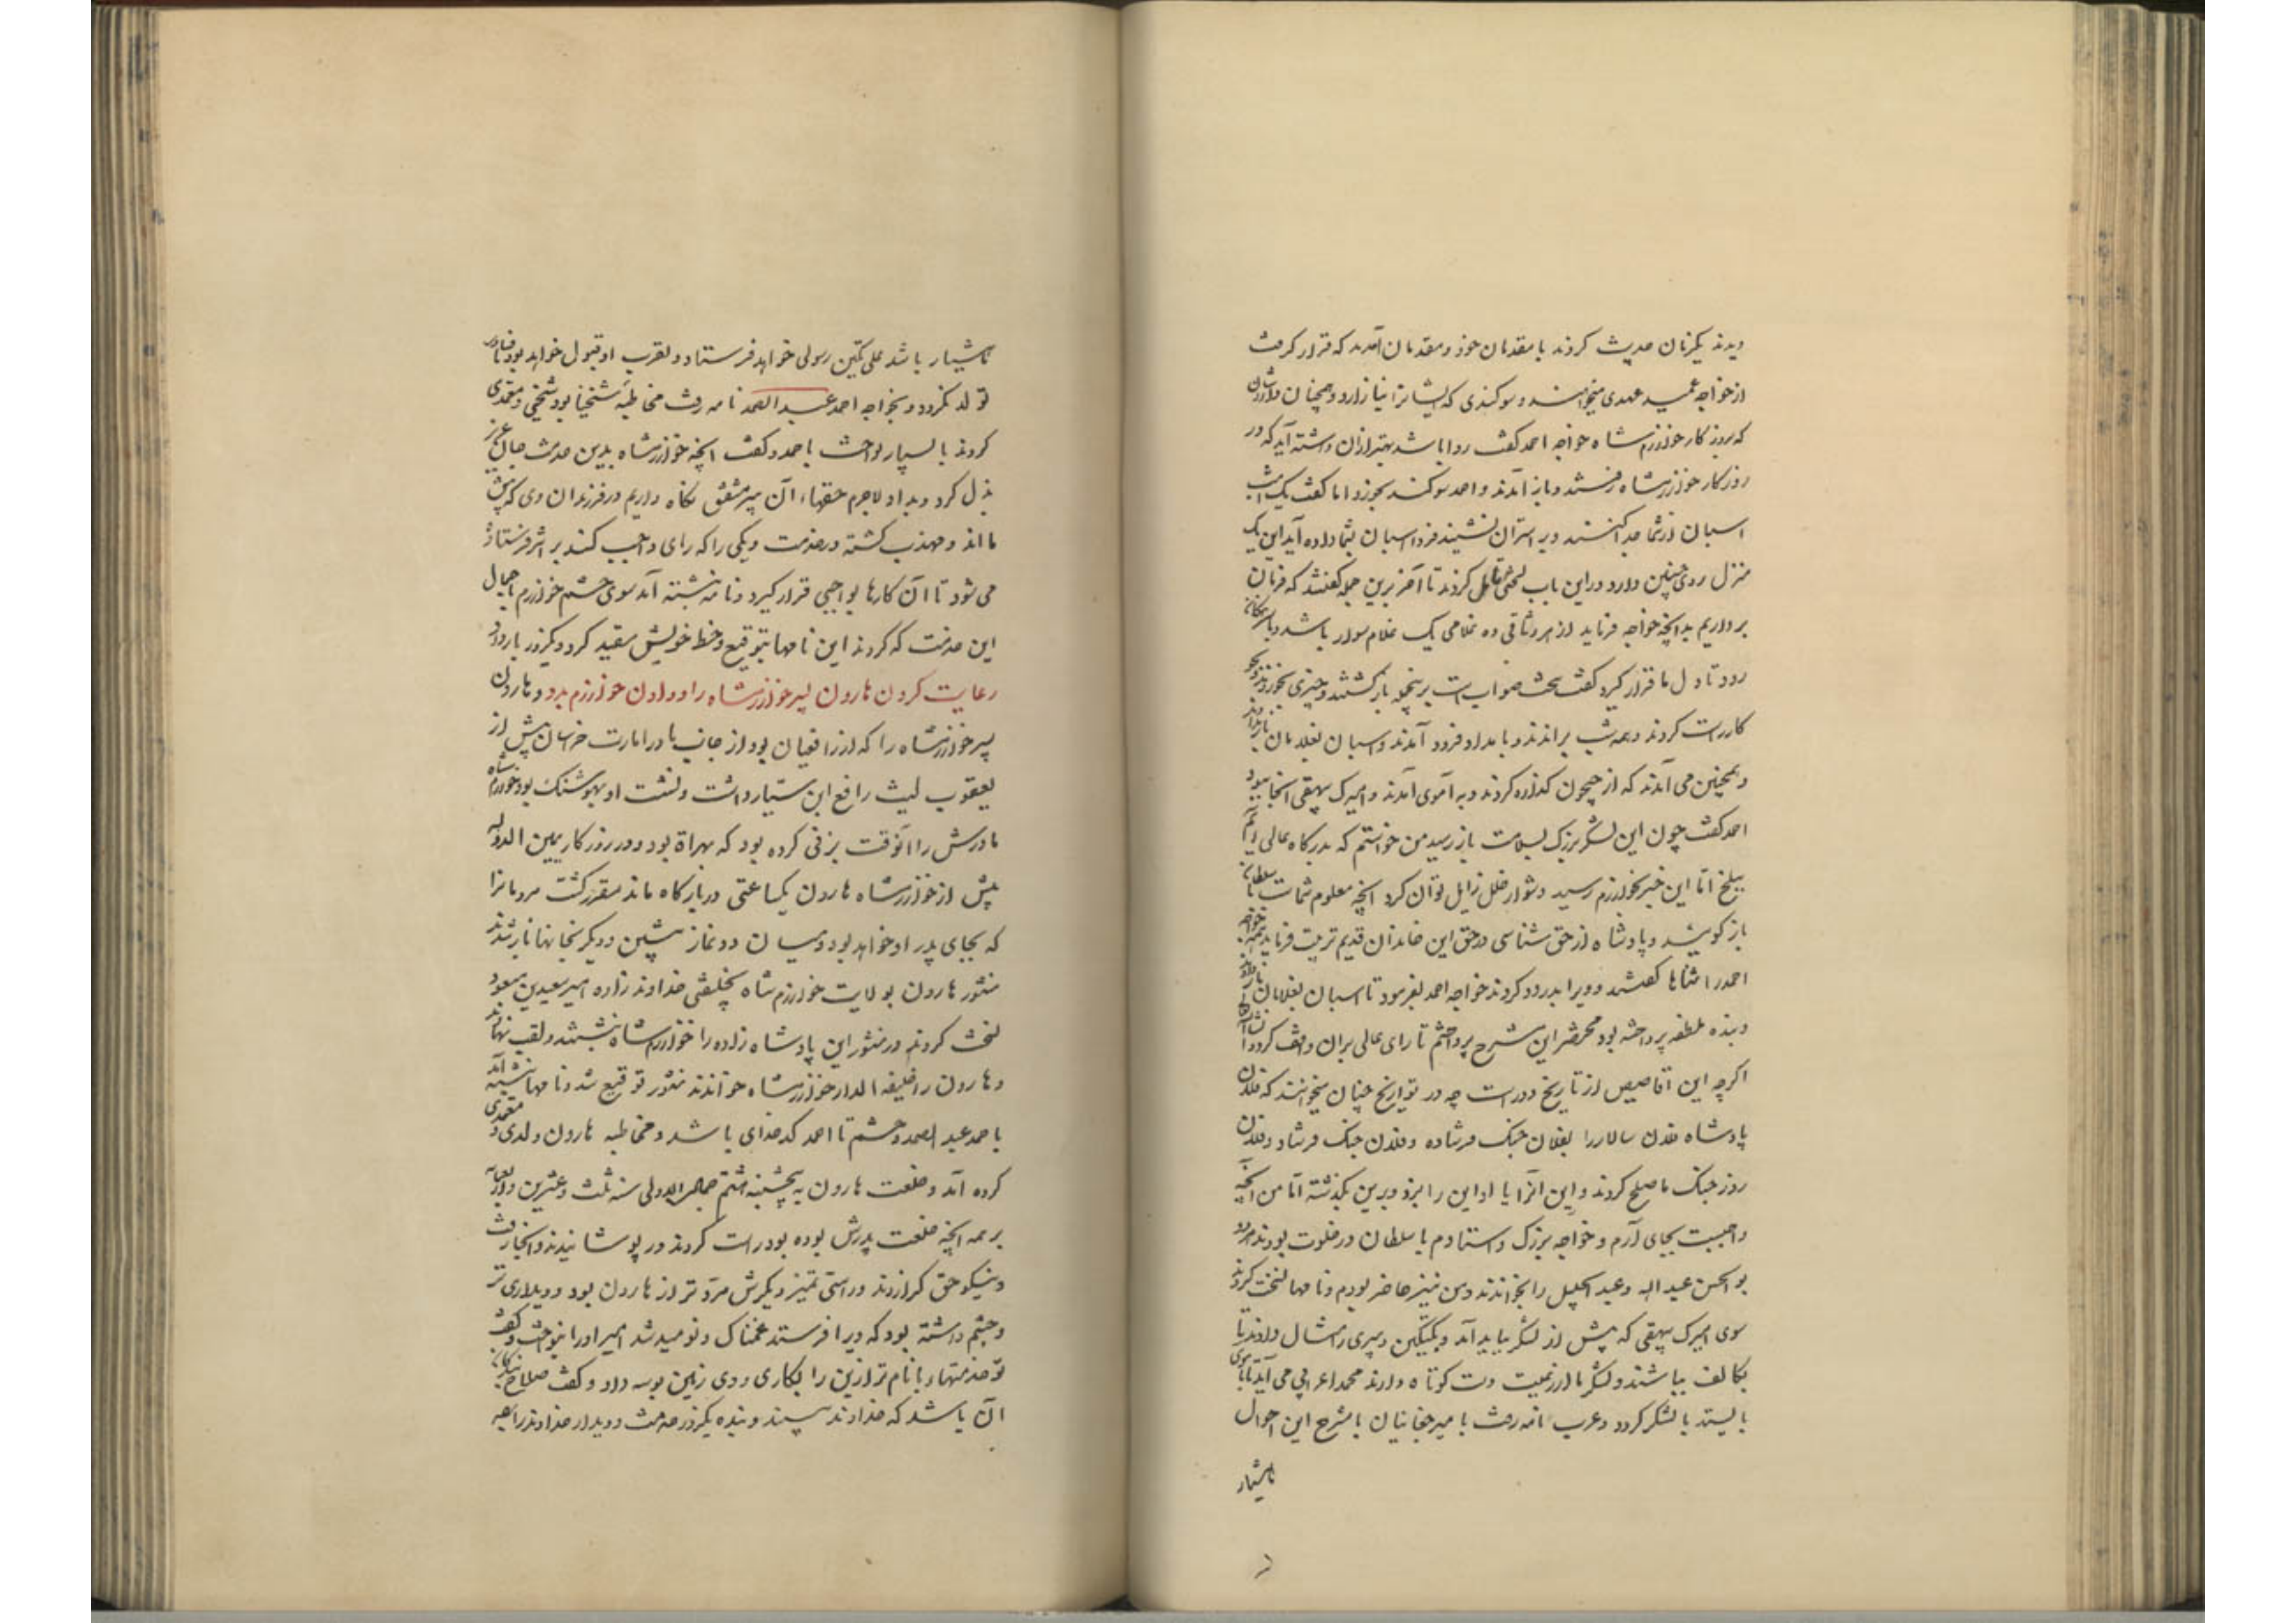 دیدند یکزنان حدیث کردند با مقدمان خود و مقدمان آمدند که قرار گرفت
از خواجه عمید عهدی میخواهند و سوکندی که ایشانرا نیازارد و همچنان دارد شان
که بروزکار خوارزمشاه خواجه احمد کفت روا باشد بهتر ازان داشته آید که در
روزکار خوارزمشاه رفتند و باز آمدند و احمد سوکند بخورد اما کفت یک امشب
اسبان از شما جدا کنند و بر استران نشینند فردا اسبان بشما داده آید این یک
منزل روی چنین دارد و دراین باب لختی تامل کردند تا آخر برین جمله کفتند که فرمان
برداریم بدانچه خواجه فرماید از هر وثاقی ده غلامی یک غلام سوار باشد و با سرهنکان
رود تا دل ما قرار کیرد کفت سخت صوابست برینجمله بازکشتند و چیزی بخوردند و
کار راست کردند و همه شب براندند و بامداد فرود آمدند و اسبان بغلامان باز ندادند
و همچنین می آمدند که از جیحون کذاره کردند و به آموی آمدند و امیرک بیهقی آنجا ببود
احمد کفت چون این لشکر بزرک بسلامت باز رسید من خواستم که بدرکاه عالی آیم
ببلخ اما این خبر بخوارزم رسید دشوار خلل زایل توان کرد آنچه معلوم شماست با سلطان
باز کویید و پادشاه از حق شناسی در حق این خاندان قدیم تربیت فرماید همه خواجه
احمد را ثناها کفتند و ویرا بدرود کردند خواجه احمد بفرمود تا اسبان بغلامان باز دادند
و بنده ملطفه پرداخته بود مختصر این مشرح پرداختم تا رای عالی بران واقف کردد
اکرچه این اقاصیص از تاریخ دورست چه در تواریخ چنان میخوانند که فلان
پادشاه فلان سالار را بفلان جنک فرستاده و فلان جنک فرستاد و فلان
روز جنک یا صلح کردند و این آنرا یا او این را بزد و برین بکذشته اما من آنچه
واجبست بجای آرم و خواجه بزرک و استادم با سلطان در خلوت بودند و هر دو
بو الحسن عبد الله و عبد الجلیل را بخواندند و من نیز حاضر بودم و نامها نسخت کردند
سوی امیرک بیهقی که پیش از لشکر بباید آمد و بکتکین و پیری را مثال دادند تا
بکالف بباشند و لشکر ما از رعیت دست کوتاه دارند محمد اعرابی می آید تا بآموی
بایستد با لشکر کرد و عرب نامه رفت با میر چغانیان با مشرح این احوال
تا هشیار
تا هشیار باشد علی تکین رسولی خواهد فرستاد و تقرب او قبول خواهد بود تا فسادی
تولد نکردد و بخواجه احمد عبد الصمد نامه رفت مخاطبه شیخنا بود شیخی و معتمدی
کردند با بسیار نواخت با حمد و کفت آنچه خوارزمشاه بدین خدمت جان عزیز
بذل کرد و بداد لاجرم حقهاء آن پیر مشفق نکاه داریم در فرزندان وی که پیش
ما اند و مهذب کشته در خدمت و یکی را که رای واجب کند بر اثر فرستاده
می شود تا آن کارها بواجبی قرار کیرد و نامه نبشته آمد سوی حشم خوارزم باجمال
این خدمت که کردند این نامها بتوقیع و خط خویش مقید کرد و یکروز بار دارد
رعایت کردن هارون پسر خوارزمشاه را و دادن خوارزم بدو و هارون
پسر خوارزمشاه را که از رافعیان بود از جانب مادر امارت خراسان پیش از
یعقوب لیث رافع ابن سیار داشت و نشست او بپوشنک بود خوارزمشاه
مادرش را آنوقت بزنی کرده بود که بهراة بود و در روزکار یمین الدوله
پیش از خوارزمشاه هارون یکساعتی در بارکاه ماند مقرر کشت مردمانرا
که بجای پدر او خواهد بود و میان دو نماز پیشین و دیکر بخانها باز شدند
منشور هارون بولایت خوارزم شاه بخلیفتی خداوند زاده امیر سعید بن مسعود
نسخت کردند در منشور این پادشاه زاده را خوارزمشاه نبشتند و لقب نهادند
و هارون را خلیفه الدار خوارزمشاه خواندند منشور توقیع شد و نامها نبشته آمد
با حمد عبد الصمد و حشم تا احمد کدخدای باشد و مخاطبه هارون ولدی و معتمدی
کرده آمد و خلعت هارون پنجشنبه هشتم جمادی الاولی سنه ثلث و عشرین و اربعمایه
بر همه آنچه خلعت پدرش بوده بود راست کردند و در پوشانیدند و آنجا رفت
و نیکو حق کزاردند و راستی تمیز دیکرش مرد تر از هارون بود و دیداری تر
و چشم داشته بود که ویرا فرستند غمناک و نومید شد امیر او را بنواخت و کفت
تو خدمتهاء با نام تر ازین را بکاری و وی زمین بوسه داد و کفت صلاح بندکان
آن باشد که خداوند بیند و بنده یکروز خدمت و دیدار خداوند را بهمه